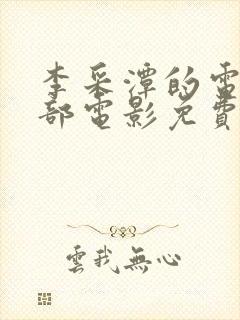 李采潭的電
部電影免費
雲我無心